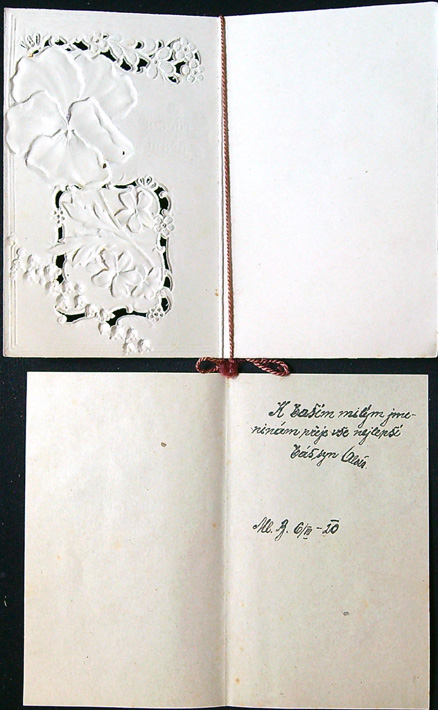 K Vašim milým jme-
ninám přeje vše nejlepší
Váš syn
Ml. B. 6/III - 20